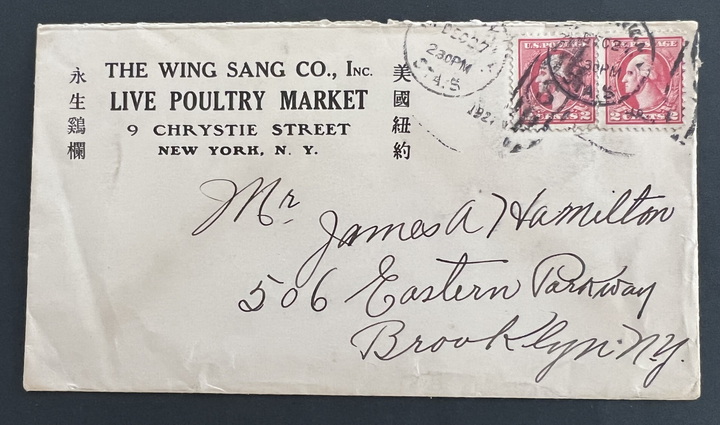 永生鷄欄
THE WING SANG CO., INC.
LIVE POULTRY MARKET
9 CHRYSTIE STREET
NEW YORK, N. Y.
美國紐約
DEC 27
230PM
S.A.S
192
U.S. POSTAGE
2 2
Mr
James A Hamilton
506 Eastern Parkway
Brooklyn. N.Y.